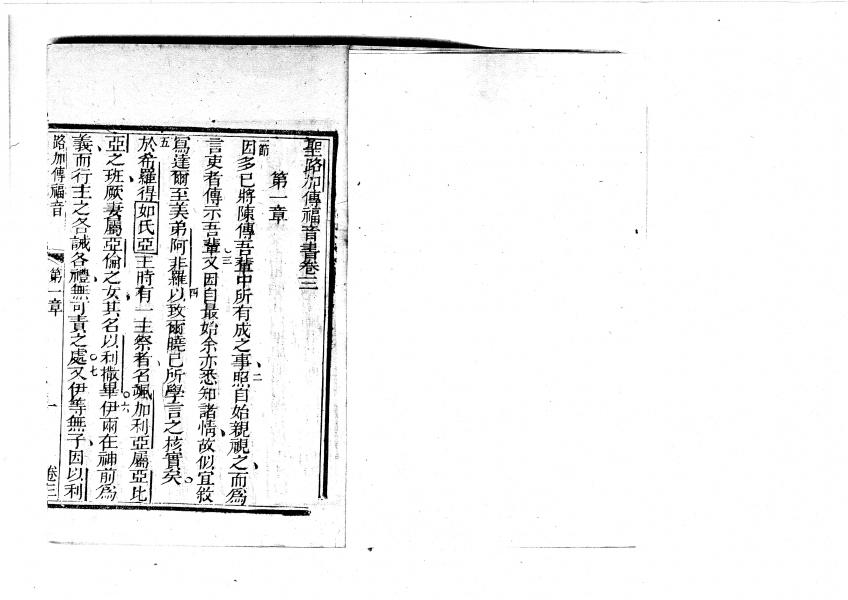 聖路加傳福音書卷三
第一章
節因多已將陳傳吾輩中所有成之事二照自始親視之而爲
言吏者傳示吾輩三又因自最始余亦悉知諸情故似宜敘
寫達爾至美弟阿非羅以四致爾曉已所學言之核實矣
五於希羅得如氏亞主時有一主祭者名㗙加利亞屬亞比
亞之班厥妻屬亞倫之女其名以利撒畢六伊爾在神前爲
義而行主之各誡各禮無可責之處七又伊等無子因以利
路加傳福音 第一章 一 卷三